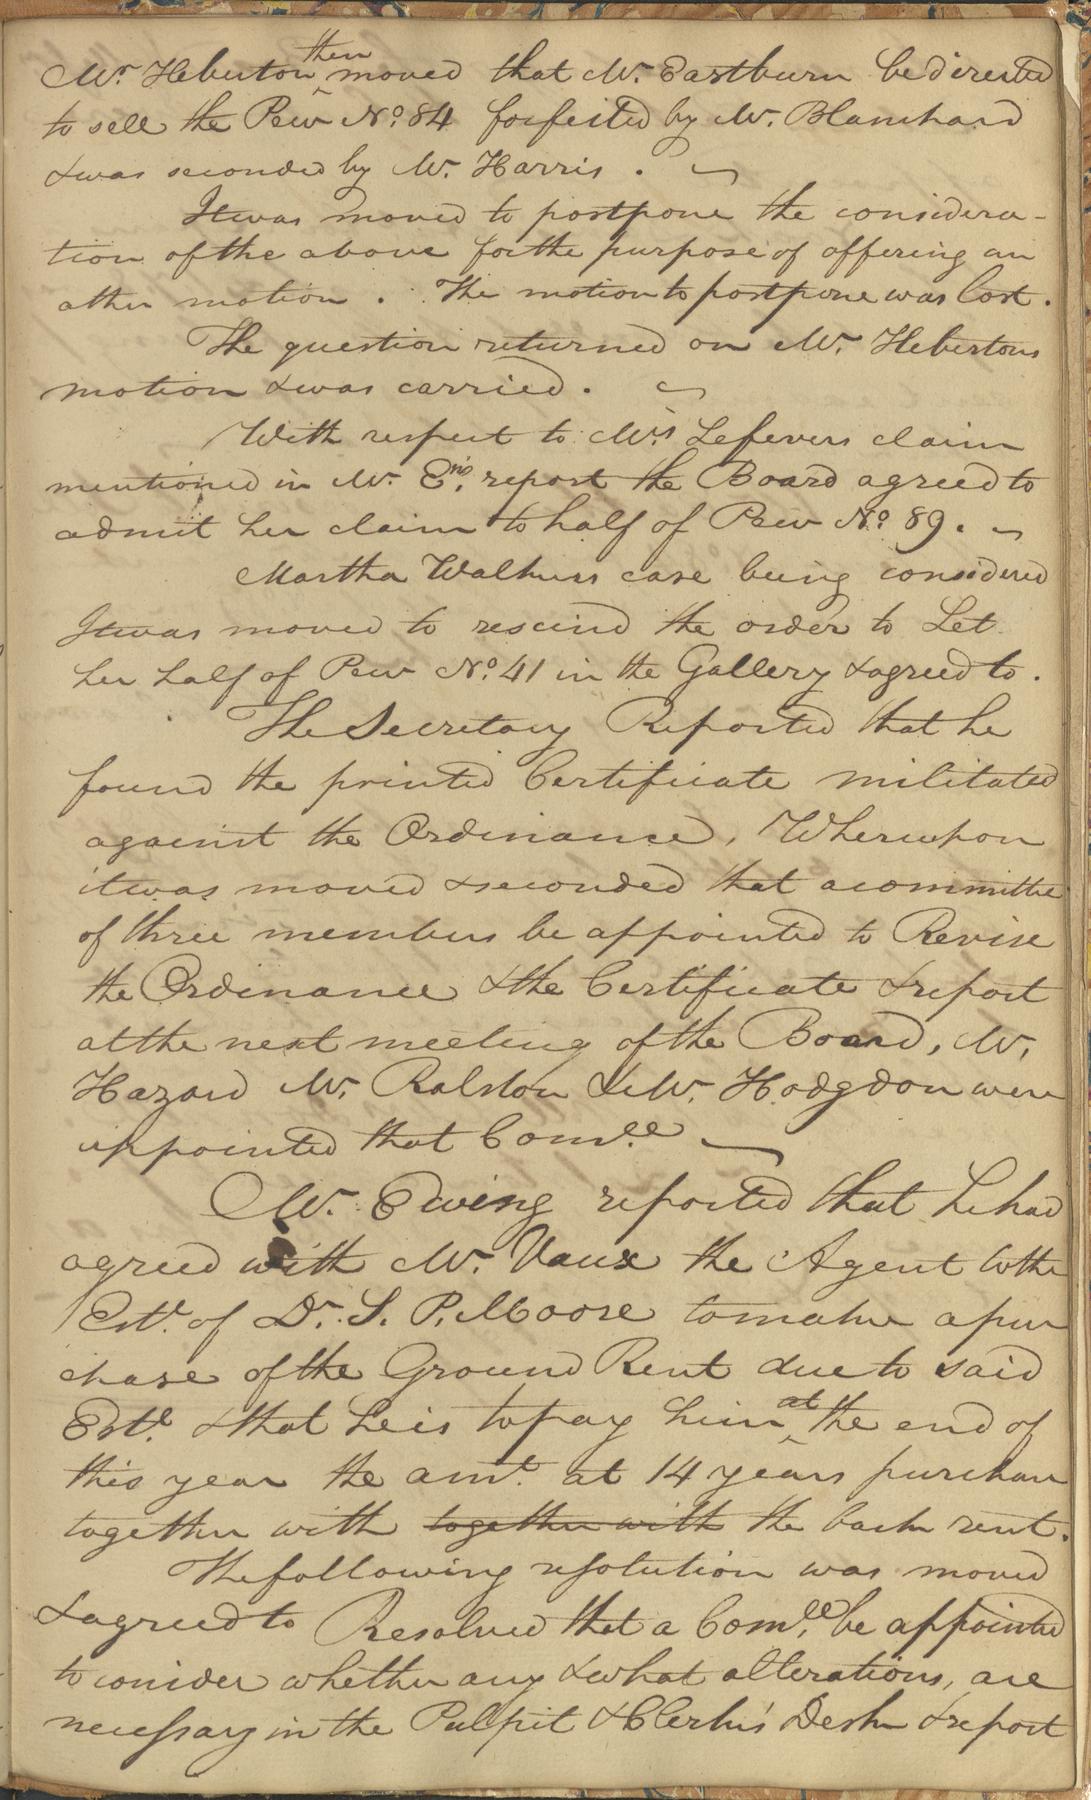 Mr. Heberton then moved that Mr. Eastburn be directed
to sell the Pew No. 84 forfeited by Mr. Blanchard
& was seconded by Mr. Harris.
It was moved to postpone the considera-
tion of the above for the purpose of offering an
other motion. The motion to postpone was lost.
The question returned on Mr. Hebertons
motion & was carried.
With respect to Mrs. Lefevers claim
mentioned in Mr. Ens. report the Board agreed to
admit her claim to half of Pew No. 89.
Martha Walkers case being considered
It was moved to rescind the order to Let
her half of Pew No. 41 in the Gallery & agreed to.
The Secretary Reported that he
found the printed Certificate militated
against the Ordinance, Whereupon
it was moved & seconded that a committee
of three members be appointed to Revise
the Ordinance & the Certificate & report
at the next meeting of the Board, Mr.
Hazard Mr. Ralston & Mr. Hodgdon were
appointed that Comee.
Mr. Ewing reported that he had
agreed with Mr. Vaux the Agent to the
Este. of Dr. S. P. Moore to make a pur
chase of the Ground Rent due to said
Este. & that he is to pay him at the end of
this year the amt. at 14 years purchase
together with together with the back rent.
The following resolution was moved
& agreed to Resolved that a Comee. be appointed
to consider whether any & what alterations, are
necessary in the Pulpit & Clerks' Desk & report